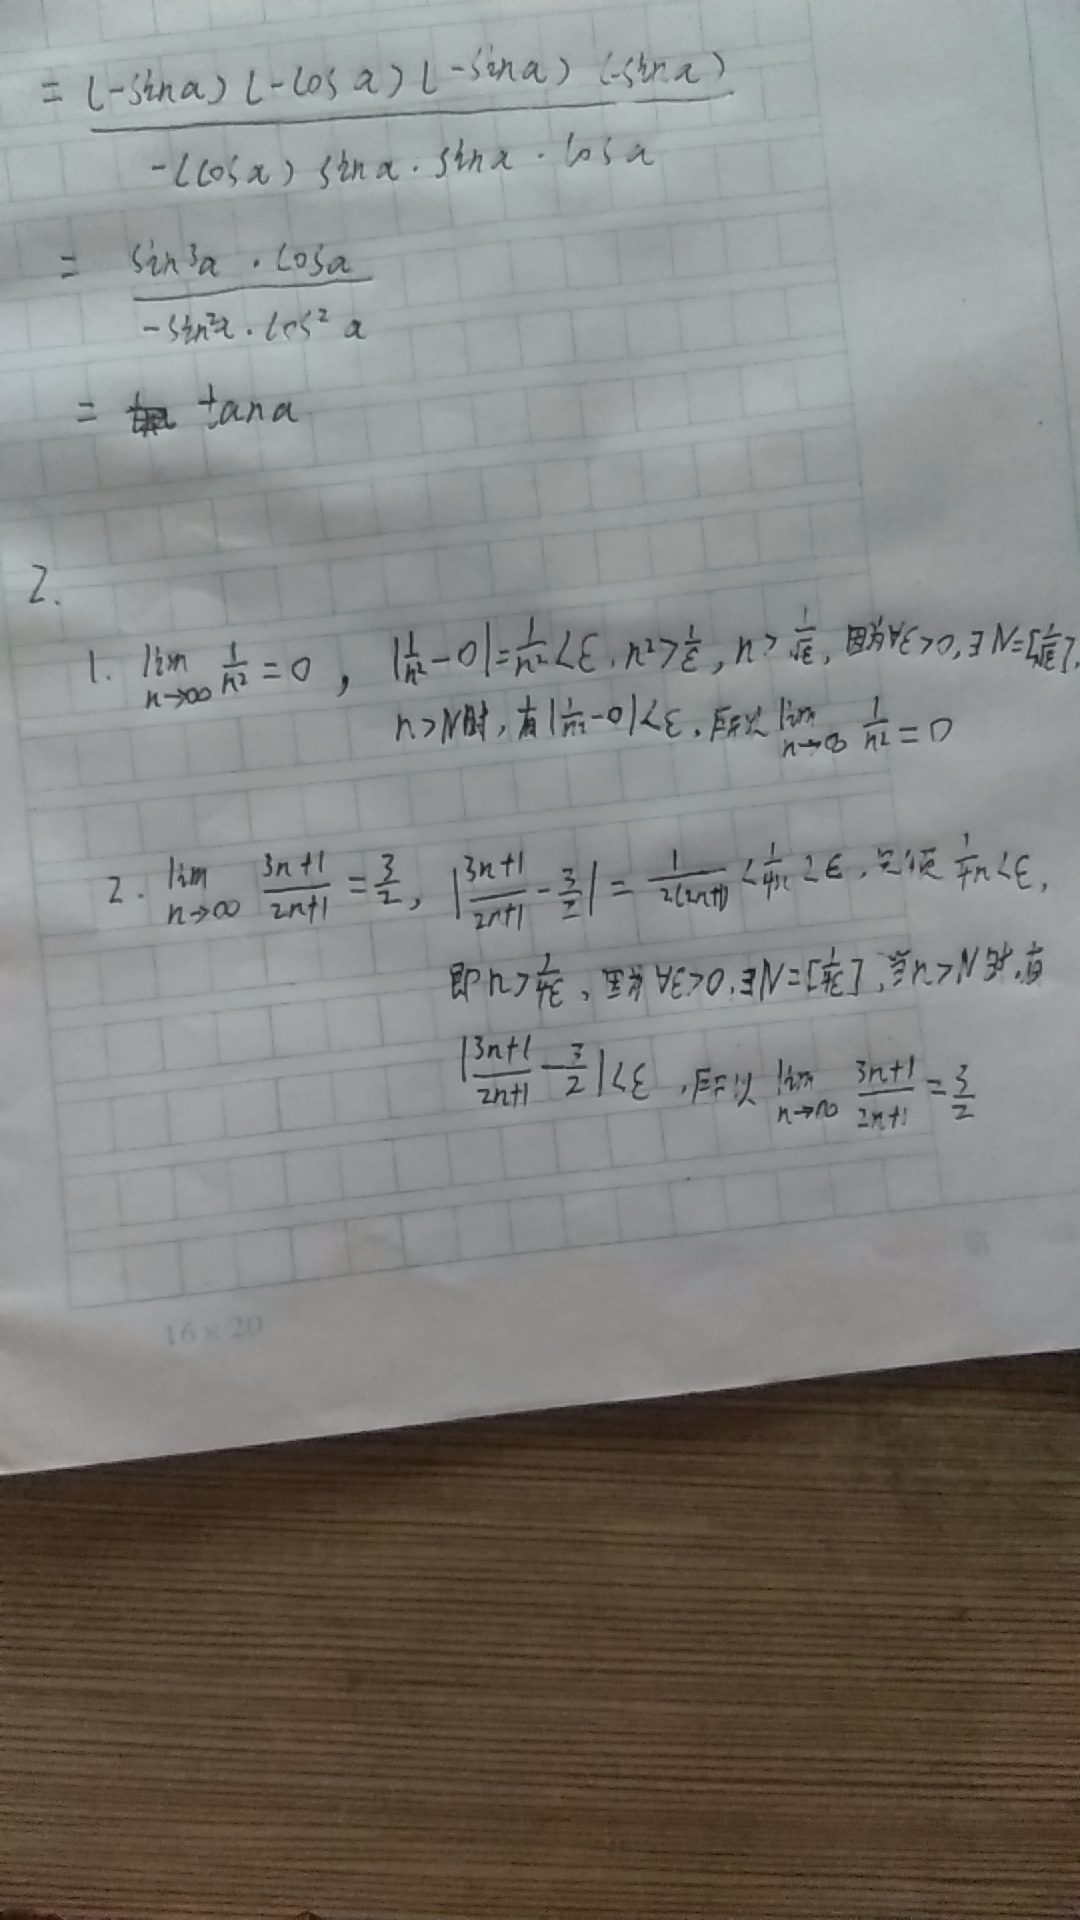 = (-sinα)(-cosα)(-sinα)(-sinα) / -(cosα) sinα · sinα · cosα
= sin³α · cosα / -sin²α · cos²α
= tanα
2.
1. lim n→∞ 1/n² = 0, |1/n² - 0| = 1/n² < ε, n² > 1/ε, n > 1/√ε, 因为∀ε>0, ∃N=[1/√ε],
n>N时, 有|1/n² - 0|<ε, 所以 lim n→∞ 1/n² = 0
2. lim n→∞ 3n+1/2n+1 = 3/2, |3n+1/2n+1 - 3/2| = 1/2(2n+1) < 1/4n < ε, 只须 1/4n < ε,
即 n > 1/4ε, 因为 ∀ε>0, ∃N=[1/4ε], 当n>N时, 有
|3n+1/2n+1 - 3/2|<ε, 所以 lim n→∞ 3n+1/2n+1 = 3/2
16×20